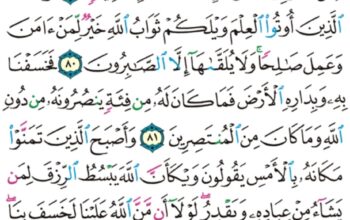 ٱلَّذِينَ أُوتُوا۟ ٱلْعِلْمَ وَيْلَكُمْ ثَوَابُ ٱللَّهِ خَيْرٌ لِّمَنْ ءَامَنَ
وَعَمِلَ صَـٰلِحًا ۚ وَلَا يُلَقَّىٰهَآ إِلَّا ٱلصَّـٰبِرُونَ ٨٠ فَخَسَفْنَا
بِهِۦ وَبِدَارِهِ ٱلْأَرْضَ فَمَا كَانَ لَهُۥ مِن فِئَةٍ يَنصُرُونَهُۥ مِن دُونِ
ٱللَّهِ وَمَا كَانَ مِنَ ٱلْمُنتَصِرِينَ ٨١ وَأَصْبَحَ ٱلَّذِينَ تَمَنَّوْا۟
مَكَانَهُۥ بِٱلْأَمْسِ يَقُولُونَ وَيْكَأَنَّ ٱللَّهَ يَبْسُطُ ٱلرِّزْقَ لِمَن
يَشَآءُ مِنْ عِبَادِهِۦ وَيَقْدِرُ ۖ لَوْلَآ أَن مَّنَّ ٱللَّهُ عَلَيْنَا لَخَسَفَ بِنَا ۖ